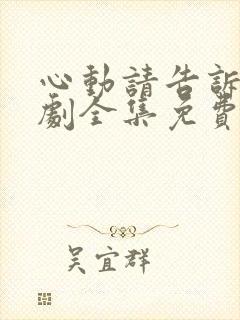 心動請告訴
劇全集免費
吳宜群